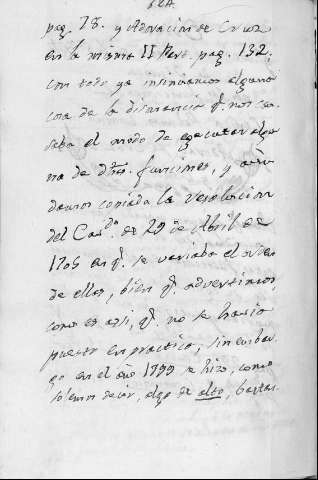 pag. 78. y Adoracion de Cruz
en la misma II Part. pag. 132.
con todo ya insinuamos alguna
cosa de la disonancia q.e nos cau-
saba el modo de egecutar algu-
na de dhas. funciones, y añi-
damos copiada la resolucion
del Cav.do de 29 de Abril de
1705 en q.e se variaba el orden
de ellas, bien q.e advertimos,
como es assi, q.e no se havia
puesto en practica, sin embar-
go en el año 1799 se hizo, como
solemos decir, algo de alto,